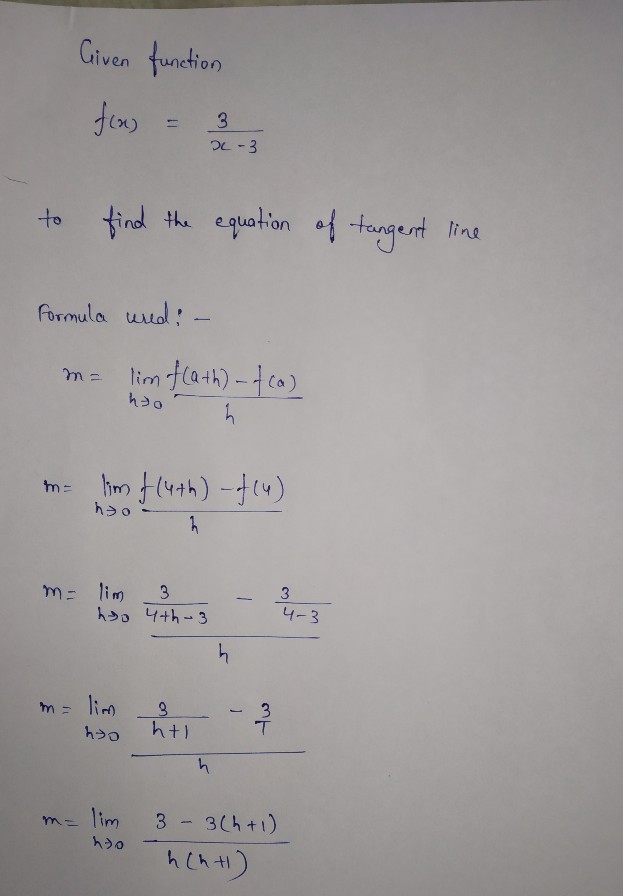 Given function
f(x) = 3 / (x - 3)
to find the equation of tangent line
Formula used: -
m = lim h→0 (f(a+h) - f(a)) / h
m = lim h→0 (f(4+h) - f(4)) / h
m = lim h→0 (3 / (4+h-3) - 3 / (4-3)) / h
m = lim h→0 (3 / (h+1) - 3/1) / h
m = lim h→0 (3 - 3(h+1)) / (h(h+1))